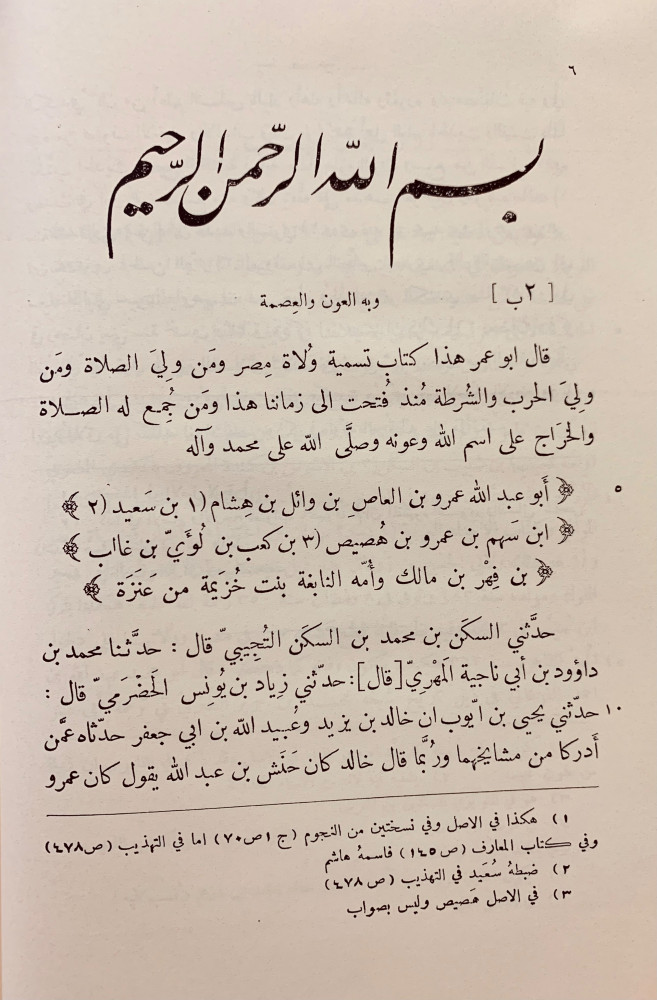 ٦
بسم الله الرحمن الرحيم
[ ٢ب ] وبه العون والعِصمة
قال ابو عمر هذا كتاب تسمية وُلاة مِصر ومَن ولِيَ الصلاة ومَن
ولِيَ الحرب والشُرطة مُنذ فُتحت الى زماننا هذا ومَن جُمِع له الصلاة
والخَراج على اسم الله وعونه وصلَّى الله على محمد وآله
﴿ أَبو عبد الله عمرو بن العاصِ بن وائل بن هِشام (١ بن سَعيد (٢ ﴾ ٥
﴿ ابن سَهم بن عمرو بن هُصيص (٣ بن كعب بن لُوَّيّ بن غالب ﴾
﴿ بن فِهْر بن مالك وأُمّه النابغة بنت خُزَيمة من عَنَزَة ﴾
حدَّثني السكَن بن محمد بن السكَن التُجِيبيّ قال : حدَّثنا محمد بن
داؤود بن أبي ناجية المَهْريّ [قال]: حدّثني زِياد بن يُونِس الحَضْرَميّ قال :
حدّثني يحيى بن ايّوب ان خالد بن يزيد وعُبيد الله بن ابي جعفر حدّثاه عمَّن ١٠
أَدركا من مشايخهما ورُبَّما قال خالد كان حَنَش بن عبد الله يقول كان عمرو
١) هكذا في الاصل وفي نسختين من النجوم (ج ١ ص ٧٠) اما في التهذيب (ص ٤٧٨)
وفي كتاب المعارف (ص ١٤٥) فاسمهُ هاشم
٢) ضبطهُ سُعَيد في التهذيب (ص ٤٧٨)
٣) في الاصل هَصيص وليس بصواب